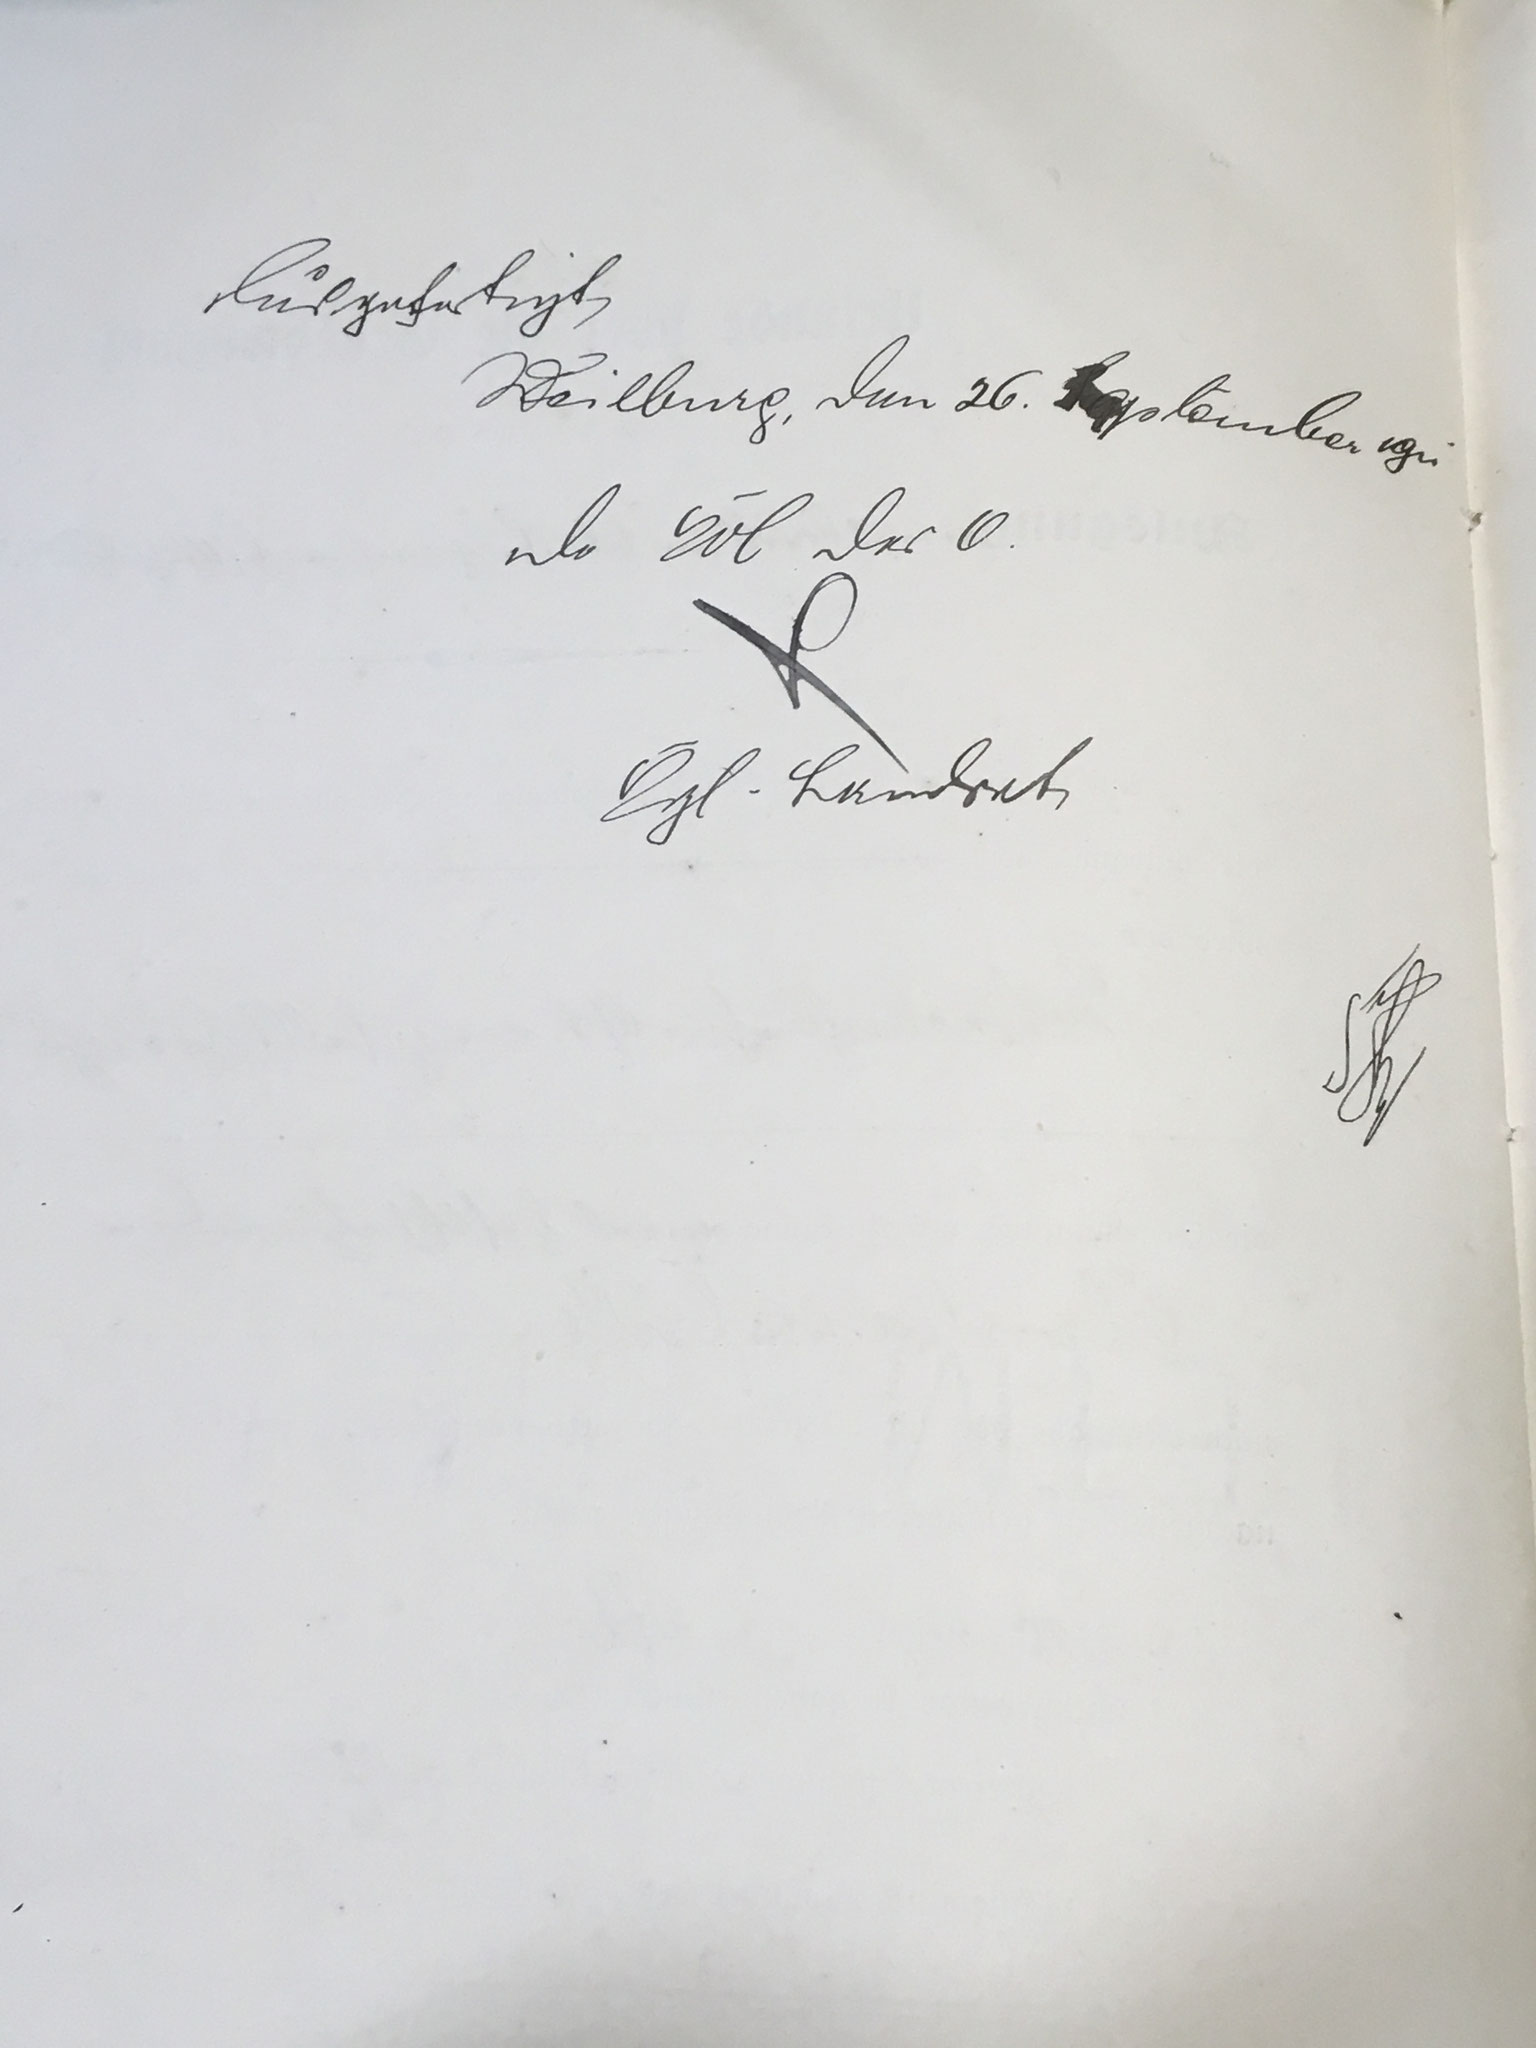 Ausgefertigt
Weilburg, den 26. September 1911
der
Kgl. Landrat